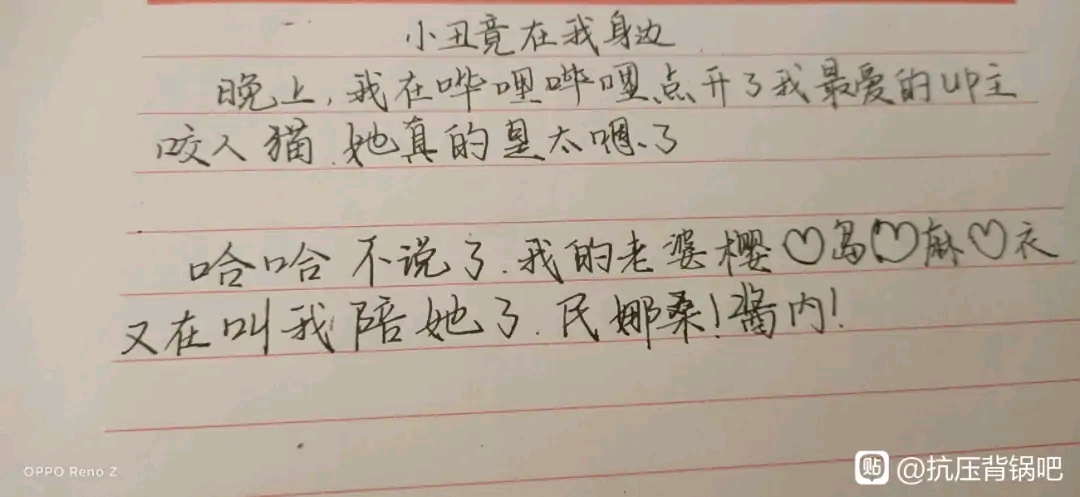 小丑竟在我身边
晚上,我在哔哩哔哩点开了我最爱的UP主
咬人猫.她真的是太嗯了
哈哈 不说了.我的老婆樱♡岛♡麻♡衣
又在叫我陪她了.民娜桑!酱内!
OPPO Reno Z
贴 @抗压背锅吧